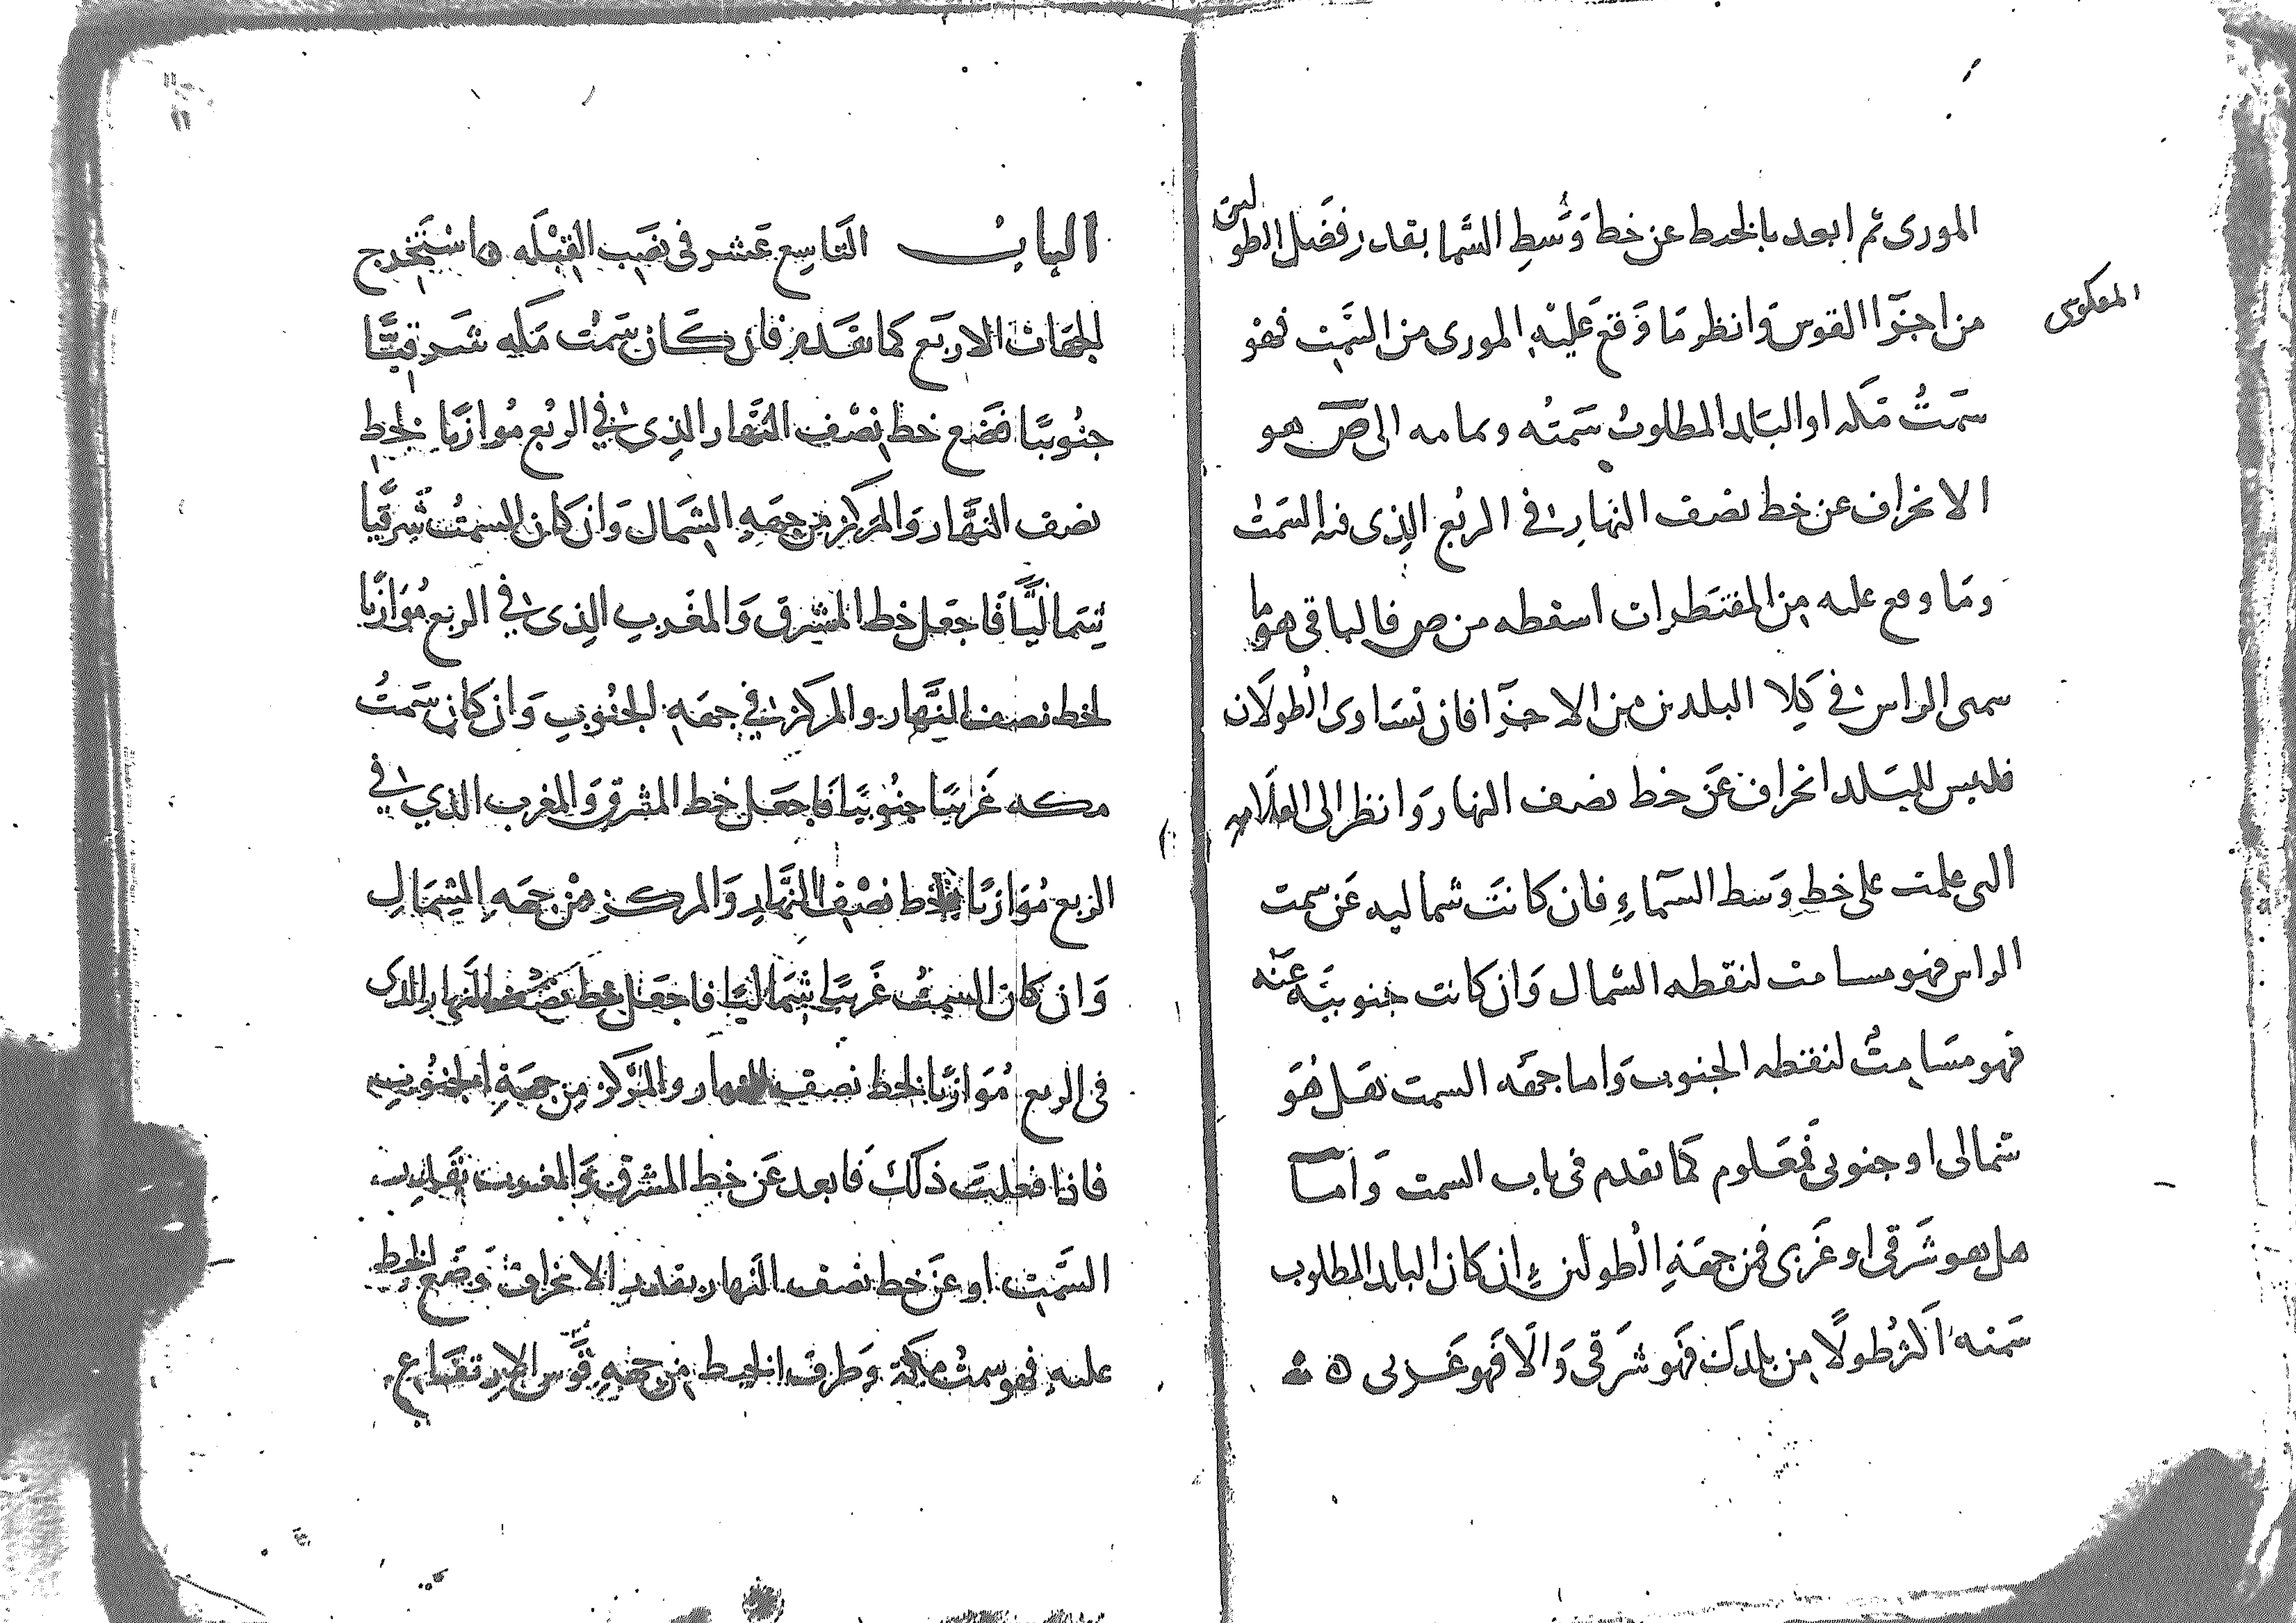 المورى ثم ابعد بالخيط عن خط وَسَطِ السَّما بقدر فَضل الطولين
من اجزآ القوس وانظر مَا وَقع عَليْهِ المورى من السَّمت فهو
المعكوس
سَمتُ مَكه او البَلد المطلوب سَمتُه وتمامه الى ص هو
الانحراف عن خط نصف النهار في الربُع الذى فيه السَمت
وَمَا وقع عليه مِن المقنطرات اسقطه من ص فالباقى هو ما
سمتى الراس في كِلا البلدين من الاجزآ فان تسَاوى الطولَان
فليس للبَلد انحراف عَن خط نصف النهار وَانظر الى العلَامه
التى علمت على خطِ وَسط السَّماءِ فان كانَت شماليه عَن سمت
الراس فهو مسامت لنقطه الشمال وَان كانت جنوبيَّه عَنه
فهو مسَامِتٌ لنقطه الجنوب وَاما جهَه السمت هَل هُوَ
شمالى او جنوبى فَمعَلوم كمَا تقدم فى باب السمت وَامَّا
هل هو شَرقى او غَربى فمن جهَةِ الطولين ان كان البلد المطلوب
سَمته اكثرُ طولًا مِن بلدكَ فَهو شَرقى وَالَا فَهو غَربى ه
البابُ التَاسِع عَشر فى نصَب القِبْلَه ه استَخرج
الجهَات الاربَع كما تقَدم فان كَان سَمت مَكه شَرقيًّا
جنُوبيًا فضَع خط نِصْف النَّهار الذى في الربُع مُوازيًا لخط
نصف النَّهَار وَالمَركز من جهَهِ الشَمال وَان كان السمتُ شَرقيًا
شِمَاليًّا فَاجعَل خط المشرق وَالمغَرب الذِى في الربع مُوَازيًا
لخط نصف النَّهار والمركز في جهَهِ الجنُوبِ وَان كان سَمتُ
مكه غَربيًا جنُوبيًا فَاجعَل خط المشرق وَالمغرب الذي في
الربع مُوَازيًا لخط نصْف النَّهارِ وَالمركز مِنْ جهَهِ الشِمَالِ
وَان كان السمتُ غَربيًا شِمَاليًا فاجعَل خط نصْف النهار الذى
فى الربع مُوَازيًا لخط نصف النهار والمَركز مِن جهَةِ الجنُوب
فاذا فعلتَ ذلكَ فَابعد عَن خط المشرق وَالمغرب بقَدر
السَّمتِ او عَن خط نصف النَهار بقدر الانحراف وَضَع الخيط
عليه فهو سمتُ مكة وَطرف الخيط من جهَهِ قَوس الارتفَاع